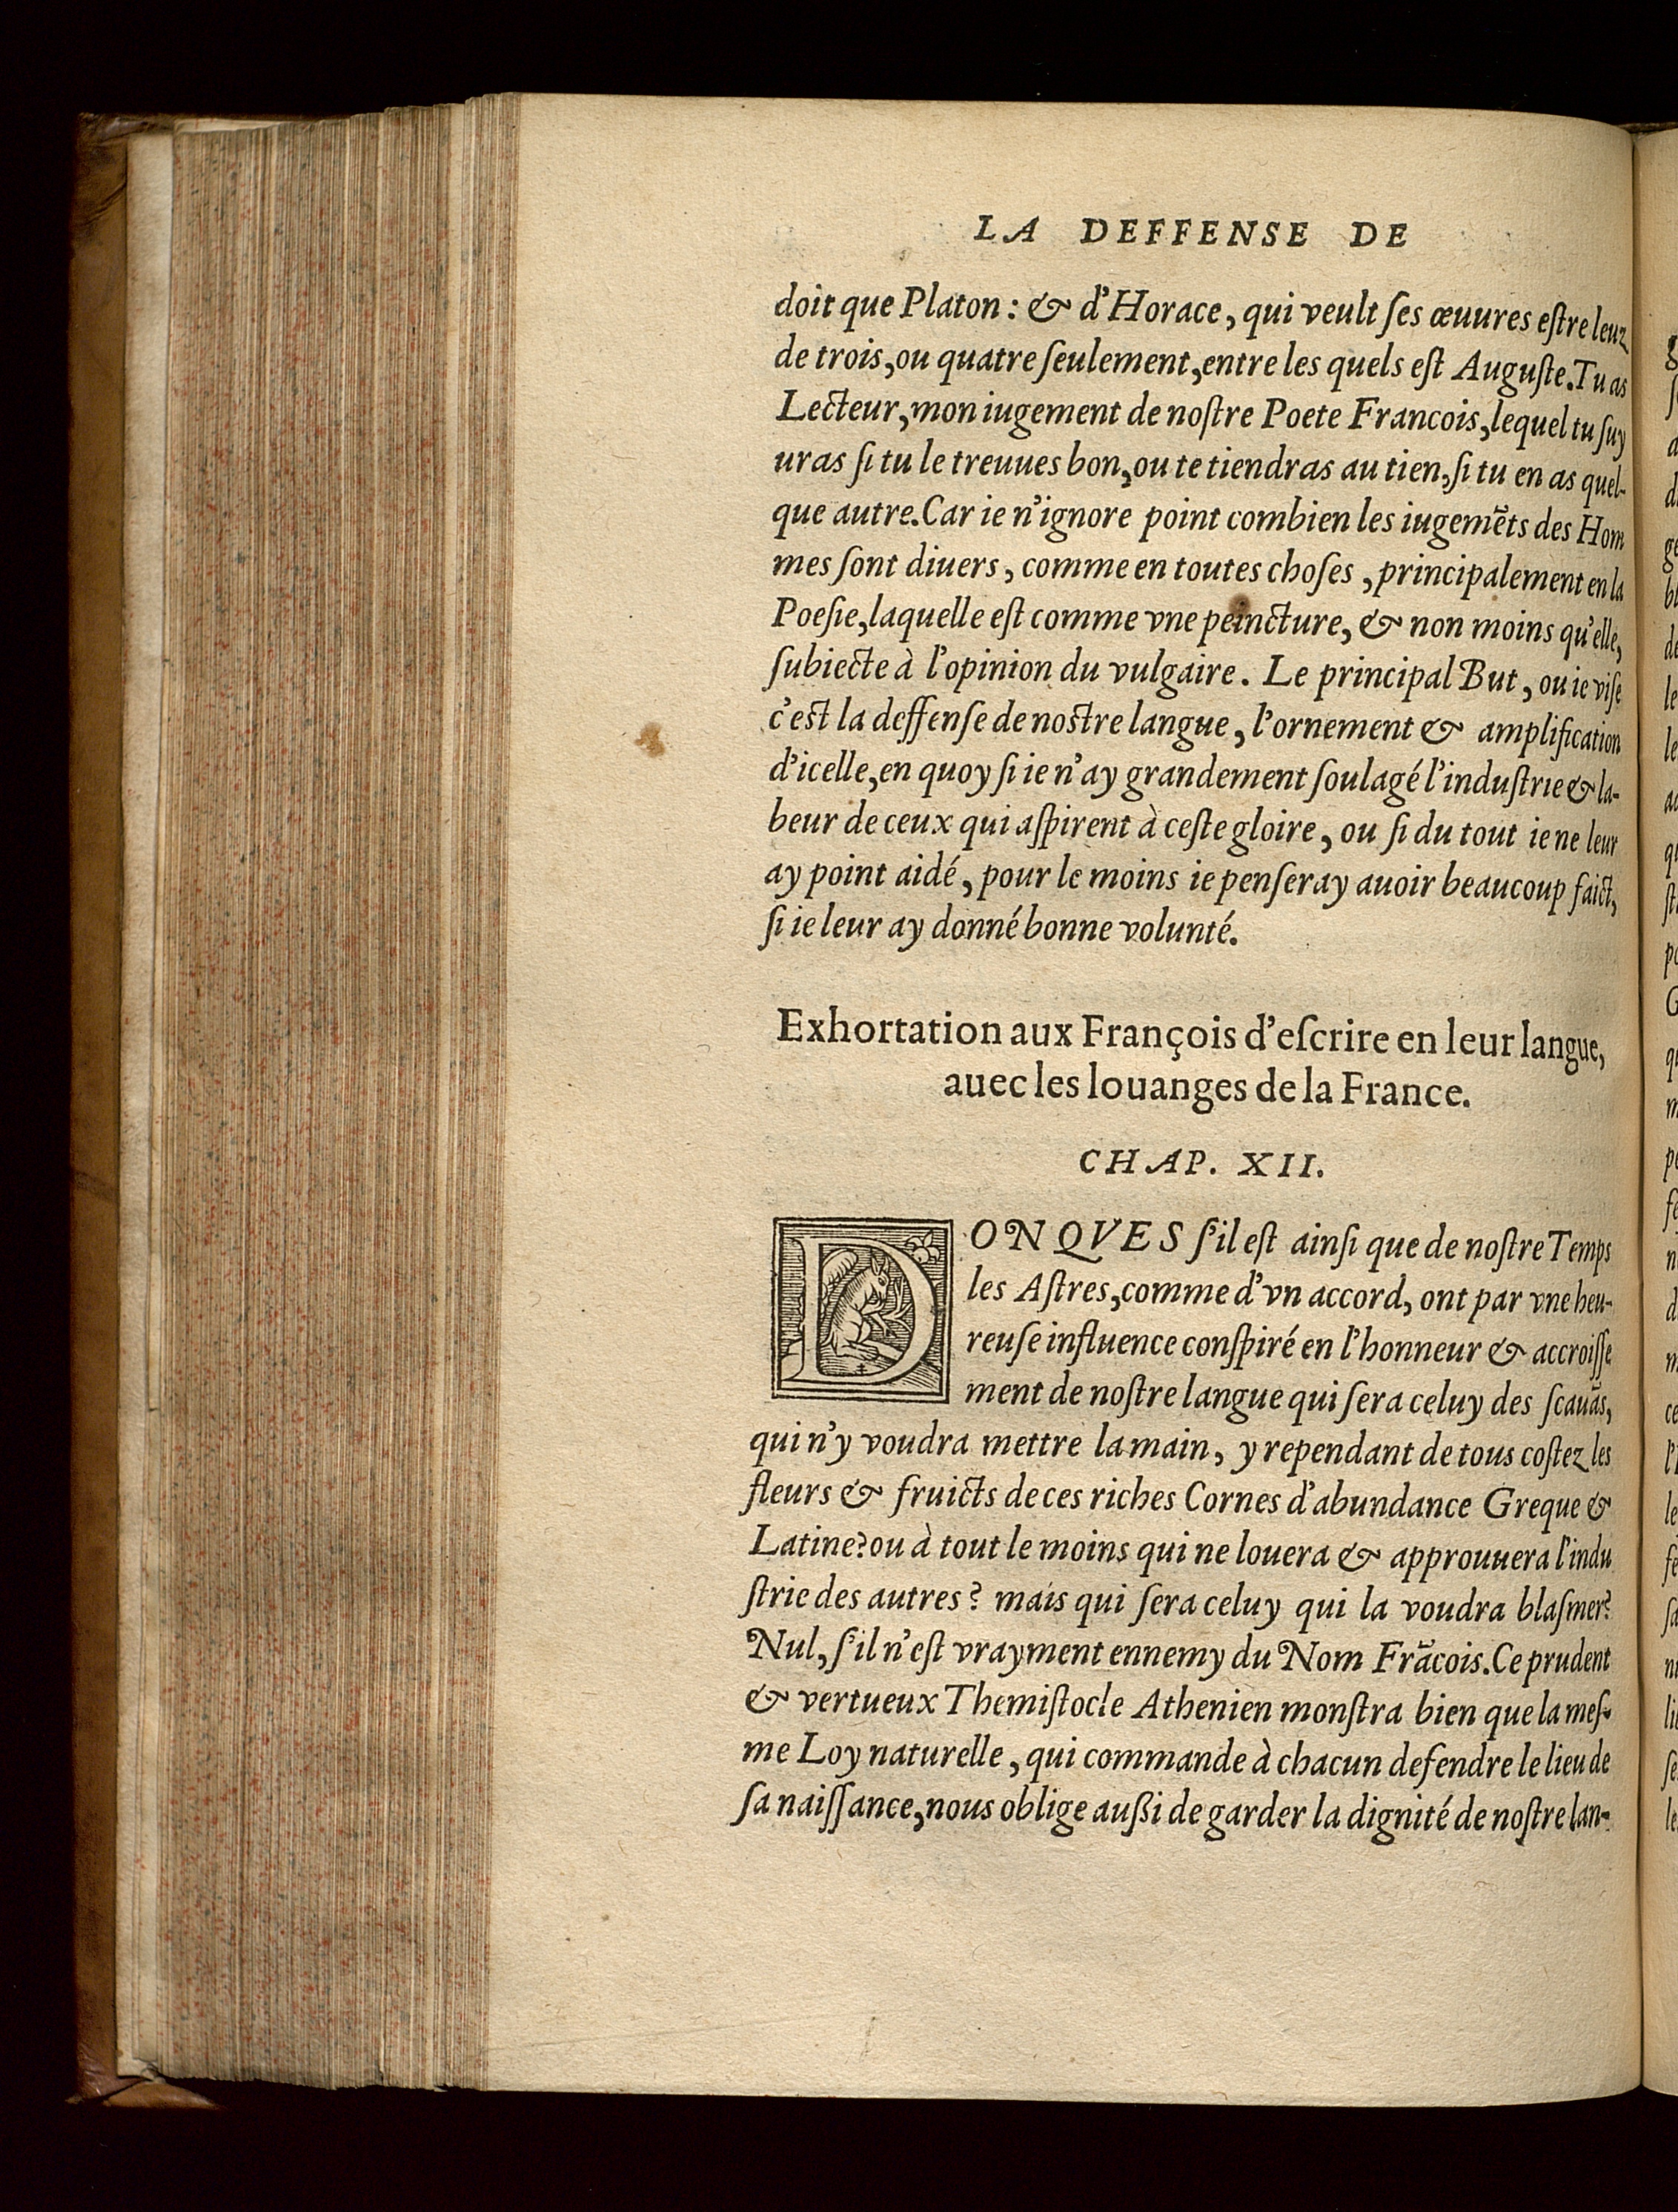 LA DEFFENSE DE
doit que Platon : & d'Horace, qui veult ſes œuures eſtre leuz
de trois, ou quatre ſeulement, entre les quels eſt Auguſte. Tu as
Lecteur, mon iugement de noſtre Poete Francois, lequel tu ſuy
uras ſi tu le treuues bon, ou te tiendras au tien, ſi tu en as quel-
que autre. Car ie n'ignore point combien les iugemẽts des Hom
mes ſont diuers, comme en toutes choſes, principalement en la
Poeſie, laquelle eſt comme vne peincture, & non moins qu'elle,
ſubiecte à l'opinion du vulgaire. Le principal But, ou ie viſe
c'eſt la deffenſe de noſtre langue, l'ornement & amplification
d'icelle, en quoy ſi ie n'ay grandement ſoulagé l'induſtrie & la-
beur de ceux qui aſpirent à ceſte gloire, ou ſi du tout ie ne leur
ay point aidé, pour le moins ie penſeray auoir beaucoup faict,
ſi ie leur ay donné bonne volunté.
Exhortation aux François d'eſcrire en leur langue,
auec les louanges de la France.
CHAP. XII.
DONQVES ſ'il eſt ainſi que de noſtre Temps
les Aſtres, comme d'vn accord, ont par vne heu-
reuſe influence conſpiré en l'honneur & accroiſſe
ment de noſtre langue qui ſera celuy des ſcauãs,
qui n'y voudra mettre la main, y rependant de tous coſtez les
fleurs & fruicts de ces riches Cornes d'abundance Greque &
Latine? ou à tout le moins qui ne louera & approuuera l'indu
ſtrie des autres? mais qui ſera celuy qui la voudra blaſmer?
Nul, ſ'il n'eſt vrayment ennemy du Nom Frãcois. Ce prudent
& vertueux Themiſtocle Athenien monſtra bien que la meſ-
me Loy naturelle, qui commande à chacun defendre le lieu de
ſa naiſſance, nous oblige außi de garder la dignité de noſtre lan-